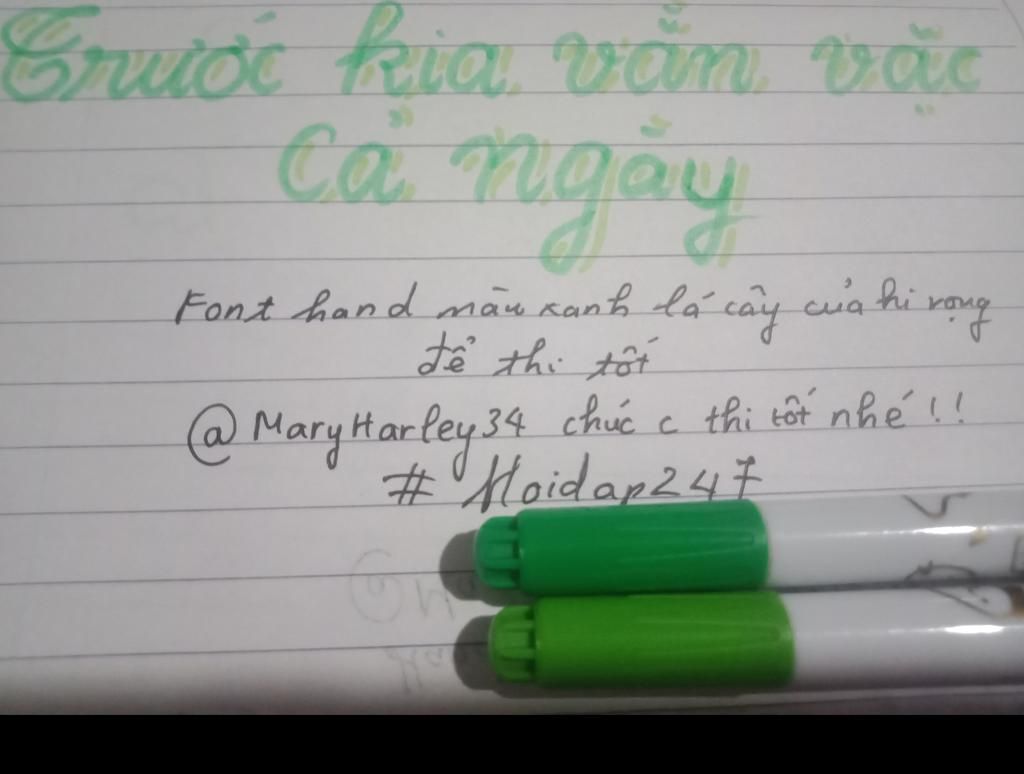 Trước kia vẫn vặc
cả ngày
Font hand màu xanh lá cây của hi vọng
để thi tốt
@MaryHarley34 chúc c thi tốt nhé!!
# Hoidap247